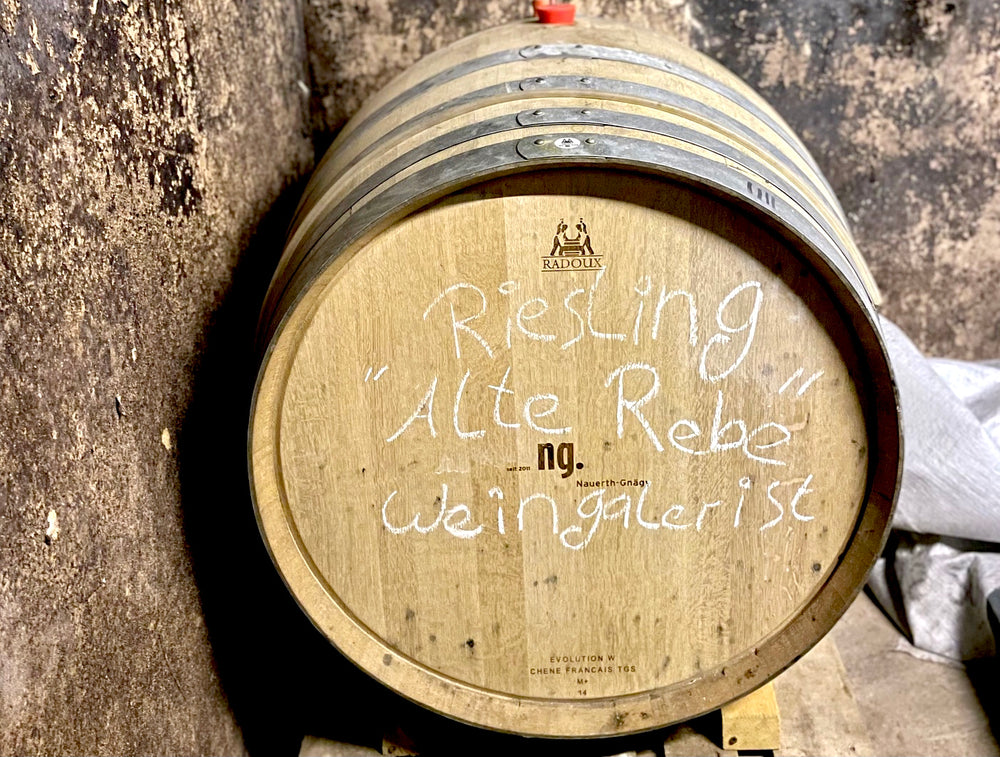 RADOUX
Riesling
"Alte Rebe"
seit 2011 ng.
Nauerth-Gnägy
Weingalerist
EVOLUTION W
CHENE FRANCAIS TGS
M+
14